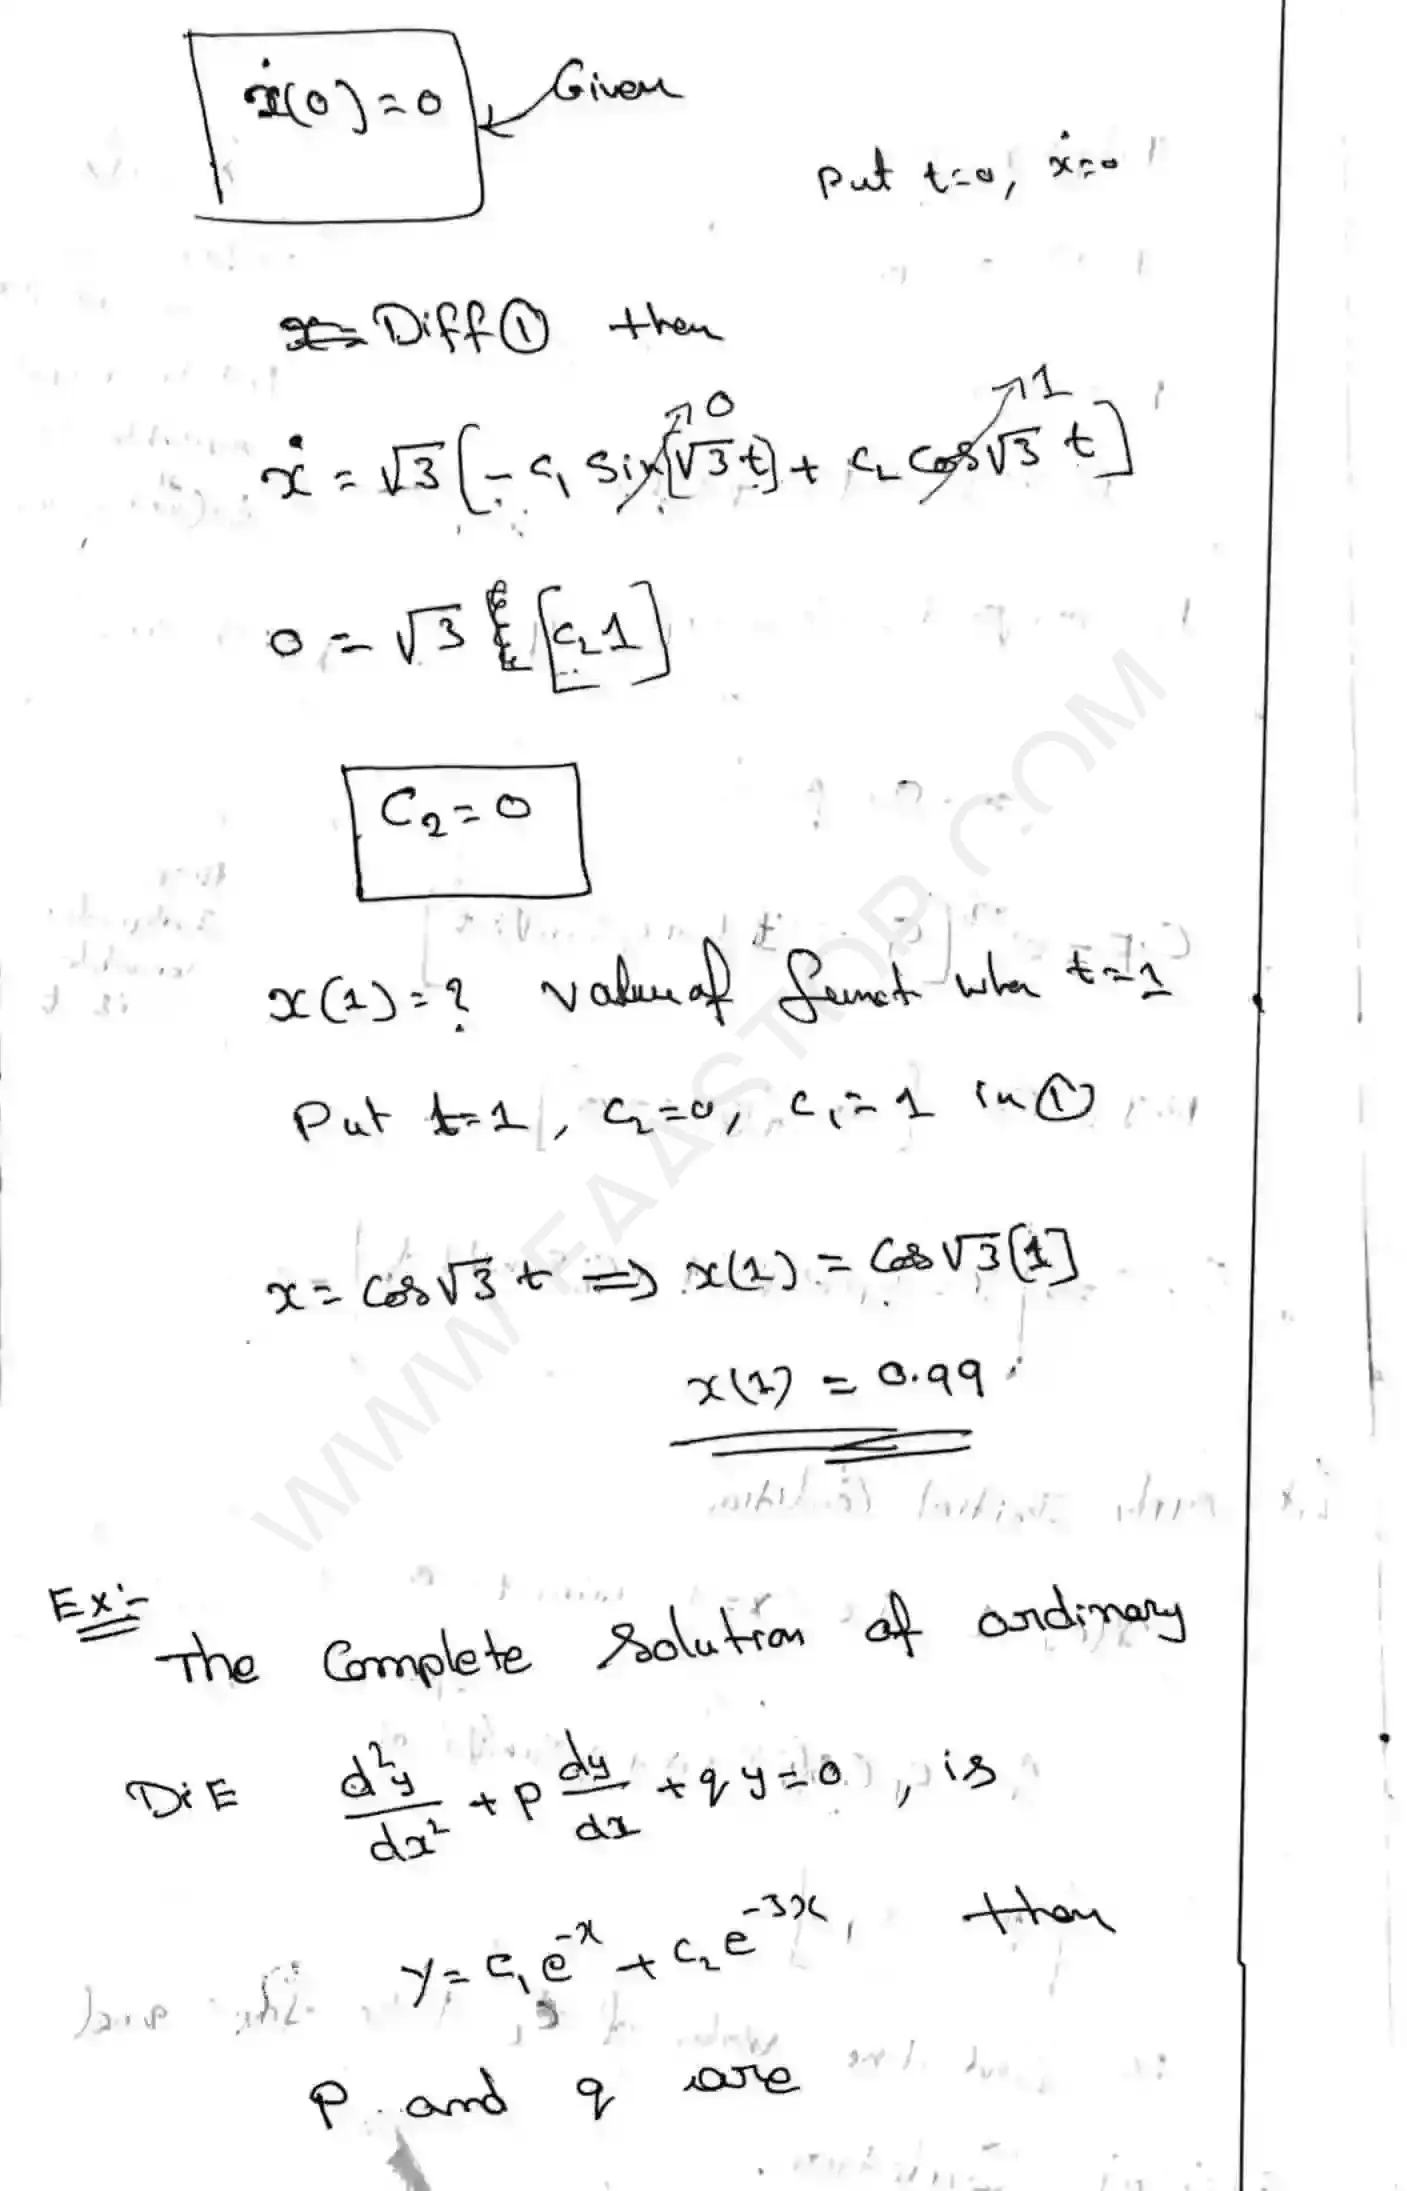 ẋ(0)=0
Given
Put t=0, ẋ=0
Diff ① then
ẋ = √3 [- c₁ sin[√3 t] + c₂ cos √3 t]
0
1
0 = √3 [c₂ 1]
C₂ = 0
x(1) = ? value of funct when t=1
Put t=1, c₂=0, c₁=1 in ①
x = cos √3 t ⇒ x(1) = cos √3 [1]
x(1) = 0.99
Ex:-
The Complete Solution of ordinary
D.E d²y/dx² + p dy/dx + q y = 0, is
y = c₁ e^-x + c₂ e^-3x, then
p and q are
WWW.FAASTOP.COM